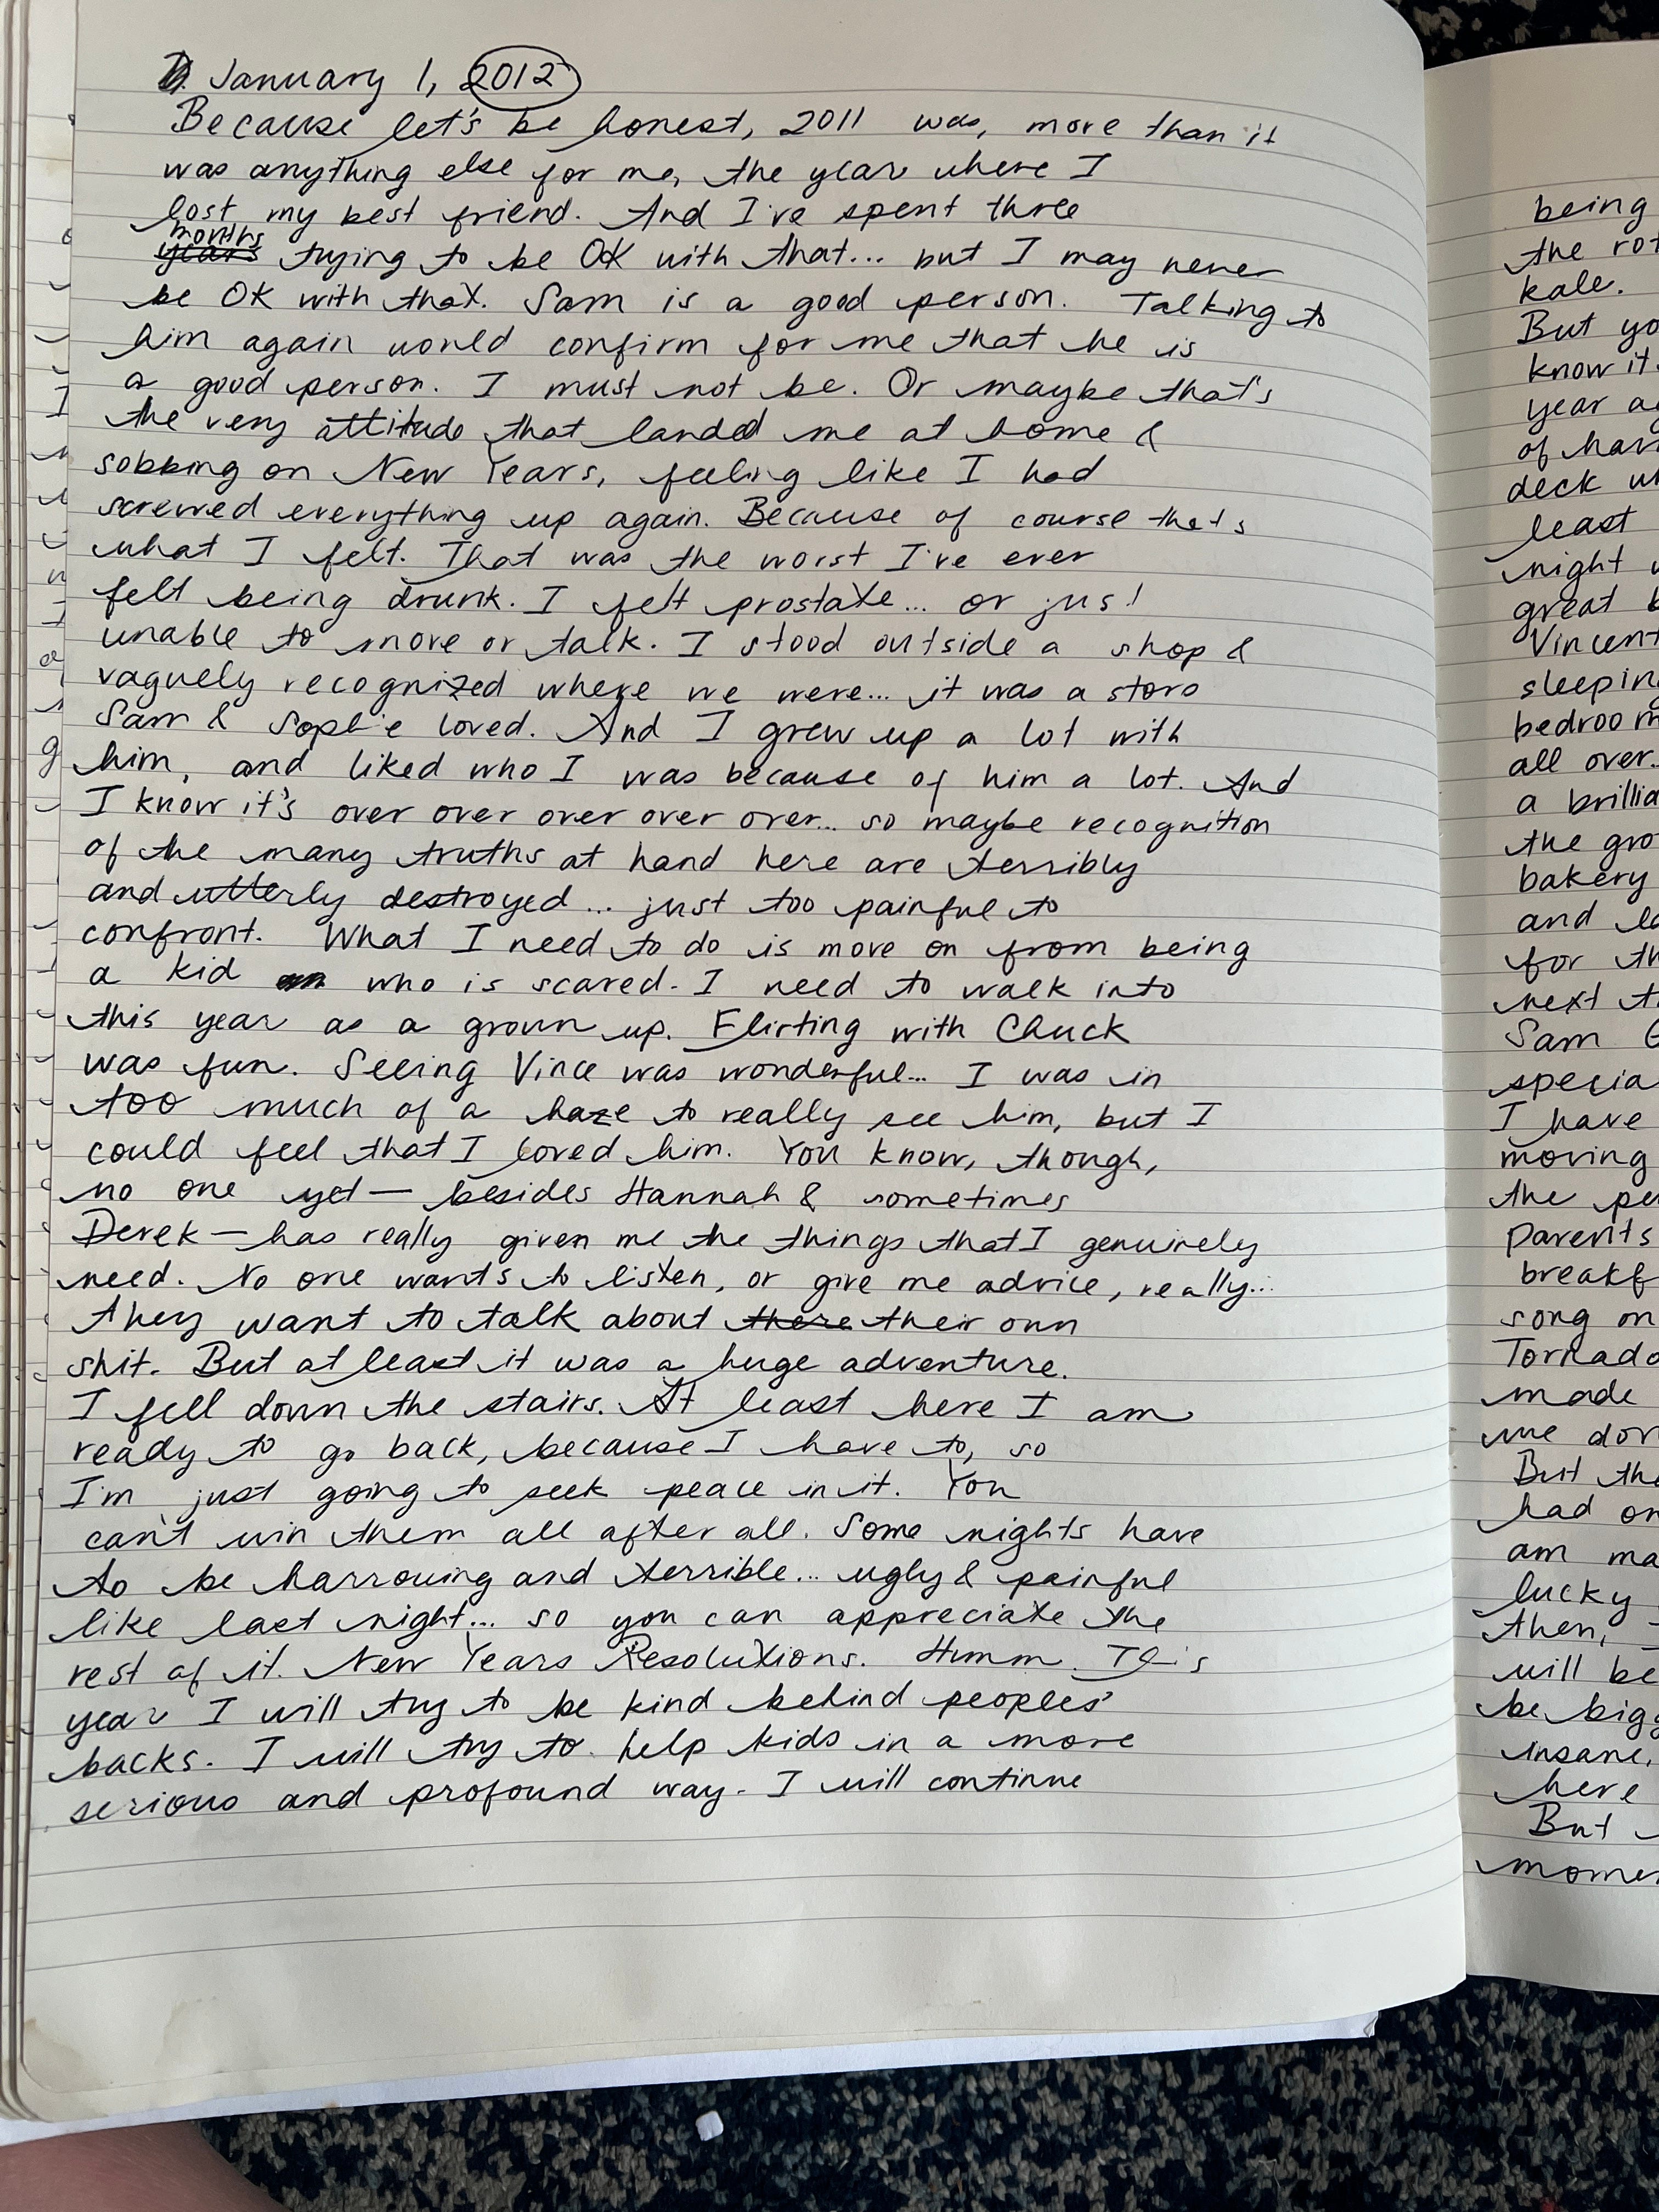 January 1, 2012
Because let's be honest, 2011 was, more than it
was anything else for me, the year where I
lost my best friend. And I've spent three
months
years trying to be OK with that... but I may never
be OK with that. Sam is a good person. Talking to
him again would confirm for me that he is
a good person. I must not be. Or maybe that's
the very attitude that landed me at home &
sobbing on New Years, feeling like I had
screwed everything up again. Because of course thats
what I felt. That was the worst I've ever
felt being drunk. I felt prostate... or just
unable to move or talk. I stood outside a shop &
vaguely recognized where we were... it was a store
Sam & Sophie loved. And I grew up a lot with
him, and liked who I was because of him a lot. And
I know it's over over over over over... so maybe recognition
of the many truths at hand here are terribly
and utterly destroyed... just too painful to
confront. What I need to do is move on from being
a kid who is scared. I need to walk into
this year as a grown up. Flirting with Chuck
was fun. Seeing Vince was wonderful... I was in
too much of a haze to really see him, but I
could feel that I loved him. You know, though,
no one yet — besides Hannah & sometimes
Derek — has really given me the things that I genuinely
need. No one wants to listen, or give me advice, really...
they want to talk about there their own
shit. But at least it was a huge adventure.
I fell down the stairs. At least here I am
ready to go back, because I have to, so
I'm just going to seek peace in it. You
can't win them all after all. Some nights have
to be harrowing and terrible... ugly & painful
like last night... so you can appreciate the
rest of it. New Years Resolutions. Hmm. This
year I will try to be kind behind peoples'
backs. I will try to help kids in a more
serious and profound way. I will continue
being
the rot
kale.
But yo
know it.
year ag
of hav
deck wh
least
night
great b
Vincent
sleeping
bedroom
all over..
a brillia
the gro
bakery
and
for th
next t
Sam
specia
I have
moving
the pe
parents
breakf
song on
Tornado
made
me
But the
had on
am ma
lucky
then,
will be
be bigg
insane,
here
But
momen